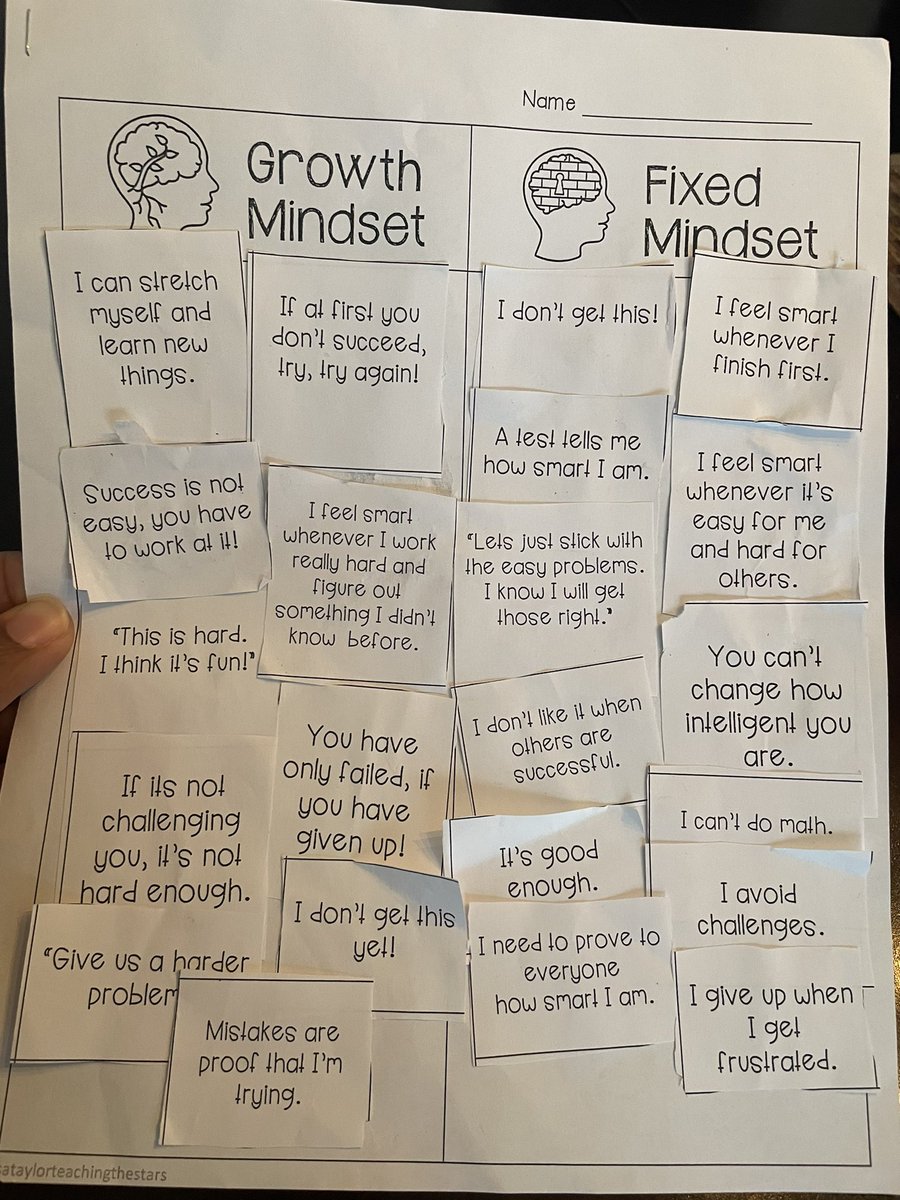 Name
Growth
Mindset
Fixed
Mindset
I can stretch
myself and
learn new
things.
If at first you
don't succeed,
try, try again!
Success is not
easy, you have
to work at it!
I feel smart
whenever I work
really hard and
figure out
something I didn't
know before.
"This is hard.
I think it's fun!"
You have
only failed, if
you have
given up!
If its not
challenging
you, it's not
hard enough.
I don't get this
yet!
"Give us a harder
problem
Mistakes are
proof that I'm
trying.
I don't get this!
I feel smart
whenever I
finish first.
A test tells me
how smart I am.
I feel smart
whenever it's
easy for me
and hard for
others.
"Lets just stick with
the easy problems.
I know I will get
those right."
You can't
change how
intelligent you
are.
I don't like it when
others are
successful.
I can't do math.
It's good
enough.
I avoid
challenges.
I need to prove to
everyone
how smart I am.
I give up when
I get
frustrated.
ataylorteachingthestars